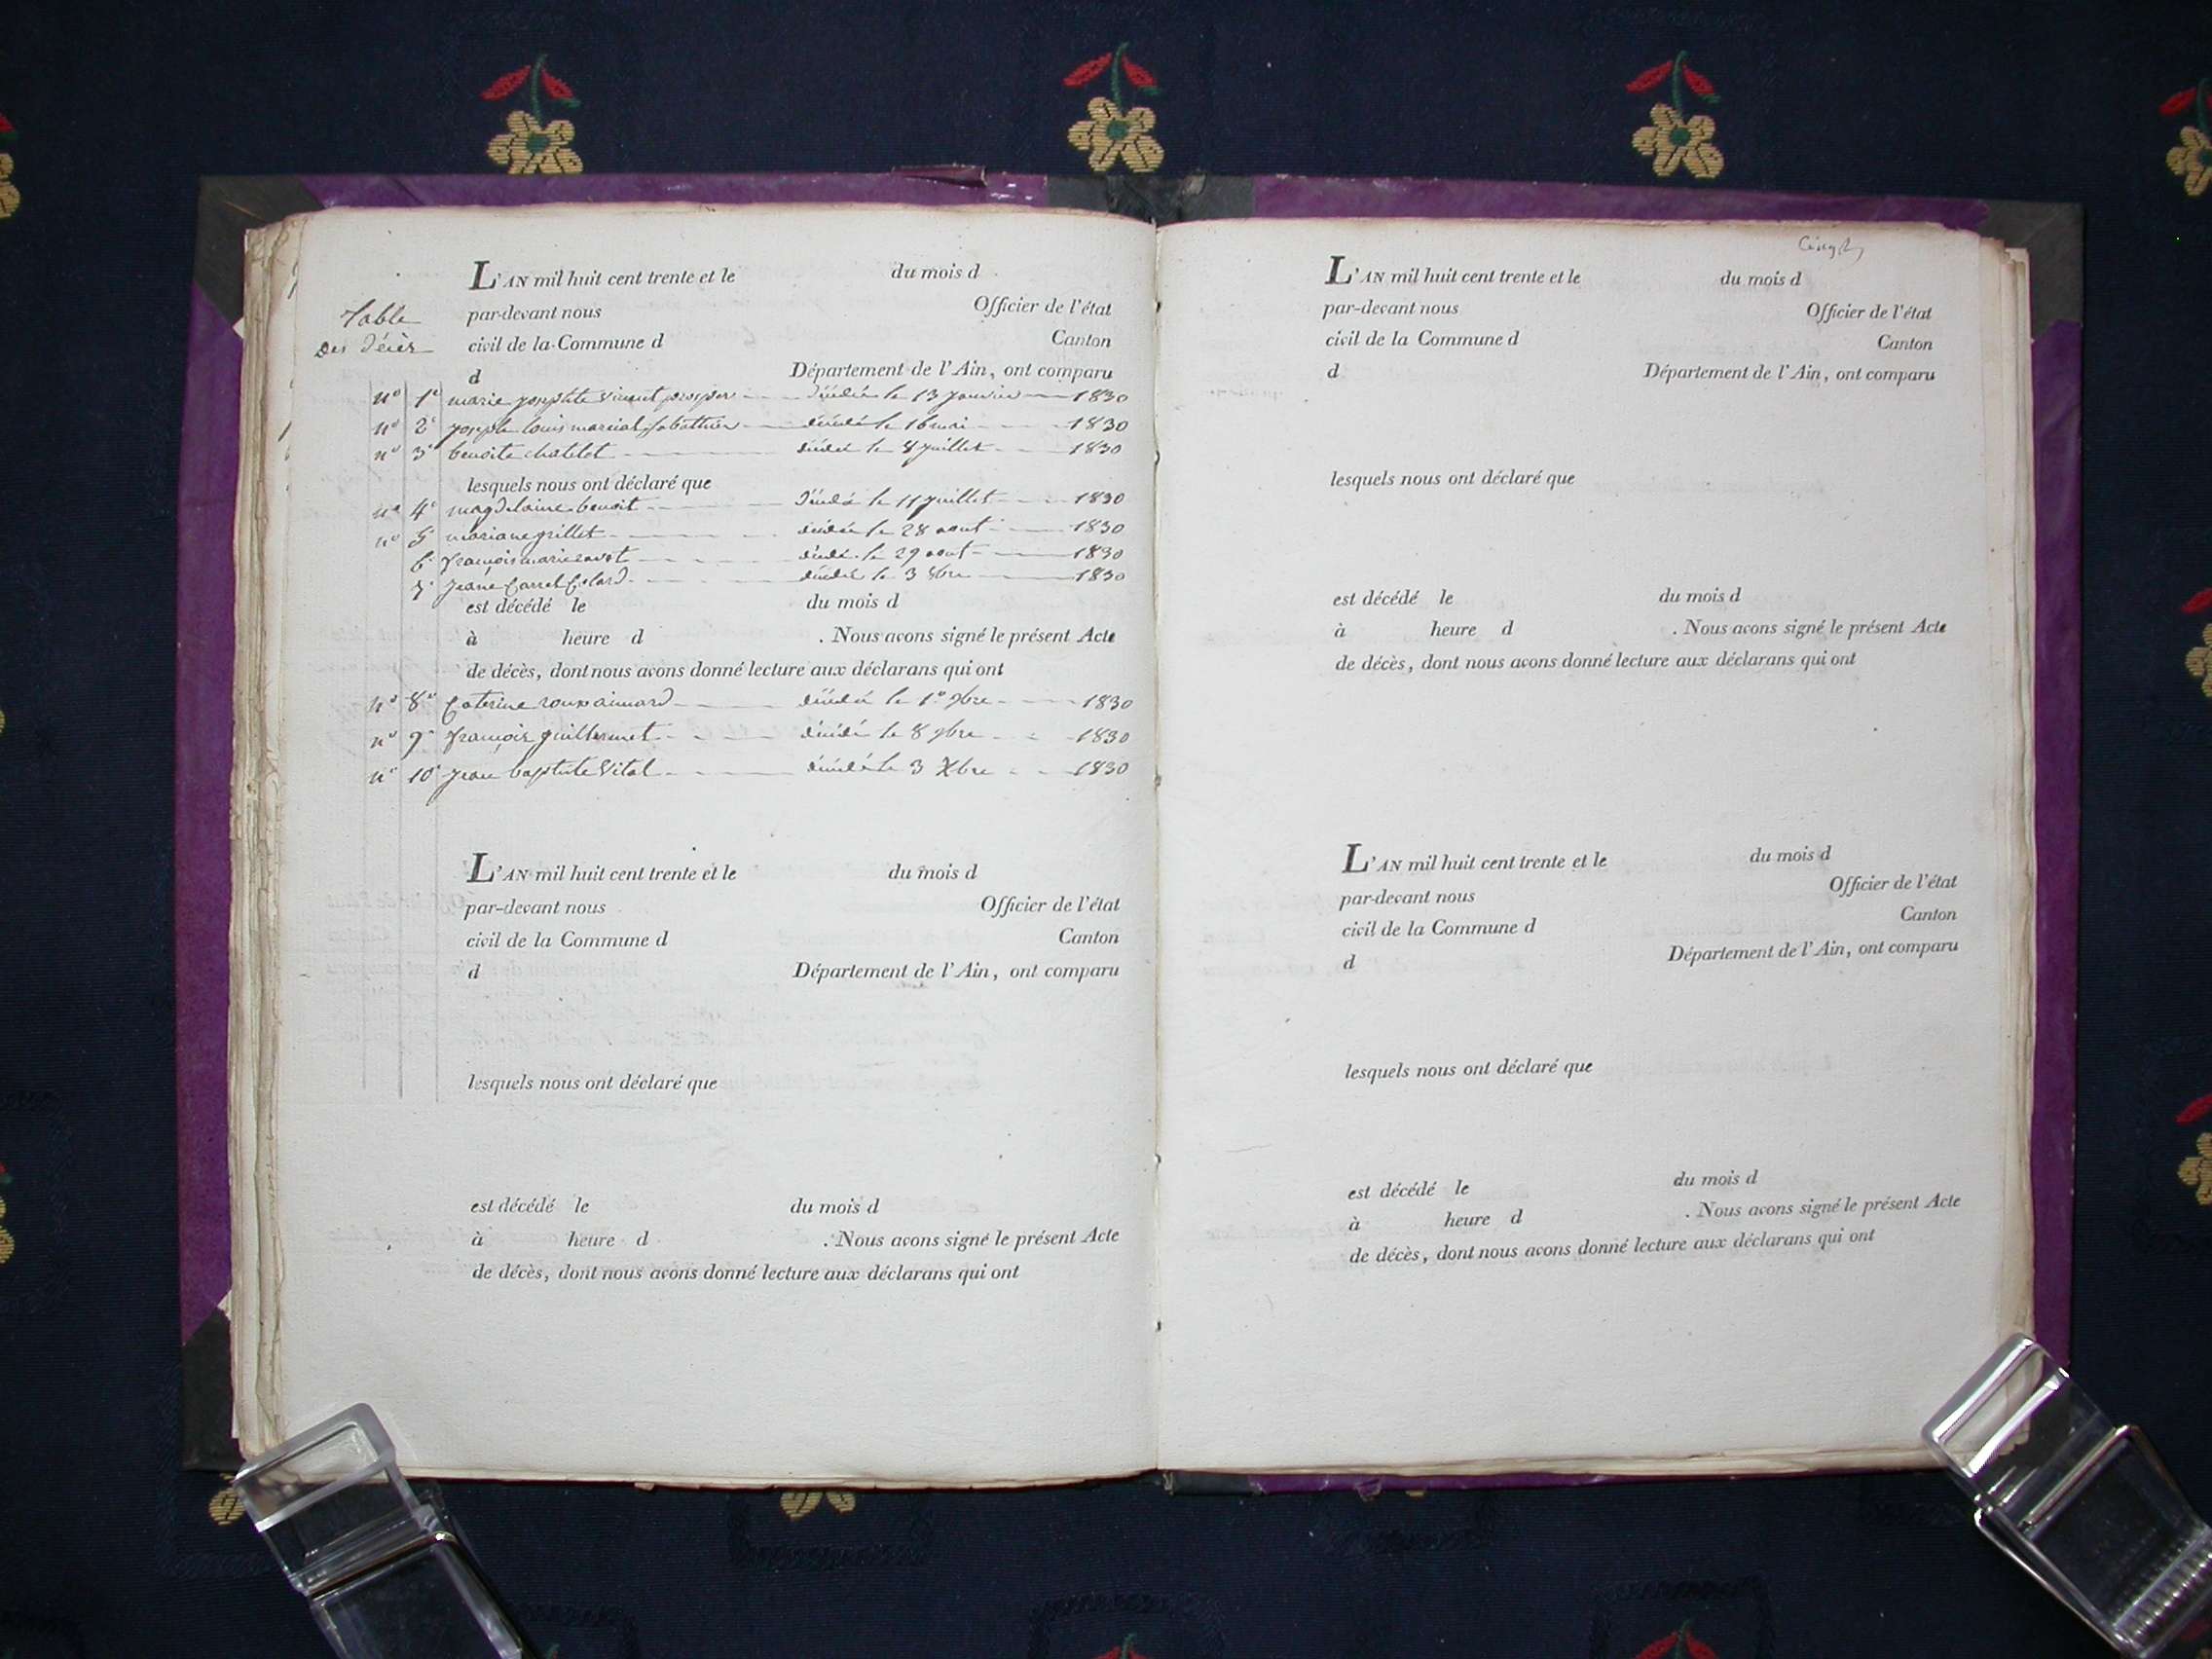 L'AN mil huit cent trente et le du mois d
Table
par-devant nous Officier de l'état
Des décès
civil de la Commune d Canton
d Département de l'Ain, ont comparu
n° 1° marie josephte vincent prosper décédée le 13 janvier 1830
n° 2° joseph louis marcial décédé le 16 mai 1830
n° 3° benoite chatelet décédée le 8 juillet 1830
lesquels nous ont déclaré que
n° 4° magdelaine benoit décédée le 11 juillet 1830
n° 5 mariane grillet décédée le 28 aout 1830
6° françois marie décédé le 29 aout 1830
7° jeane Carrel décédée le 3 8bre 1830
est décédé le du mois d
à heure d . Nous avons signé le présent Acte
de décès, dont nous avons donné lecture aux déclarans qui ont
n° 8° Caterine roux aimard décédée le 1° 9bre 1830
n° 9° françois guillermet décédé le 8 9bre 1830
n° 10° jean baptiste Vital décédé le 3 Xbre 1830
L'AN mil huit cent trente et le du mois d
par-devant nous Officier de l'état
civil de la Commune d Canton
d Département de l'Ain, ont comparu
lesquels nous ont déclaré que
est décédé le du mois d
à heure d . Nous avons signé le présent Acte
de décès, dont nous avons donné lecture aux déclarans qui ont
L'AN mil huit cent trente et le du mois d
par-devant nous Officier de l'état
civil de la Commune d Canton
d Département de l'Ain, ont comparu
lesquels nous ont déclaré que
est décédé le du mois d
à heure d . Nous avons signé le présent Acte
de décès, dont nous avons donné lecture aux déclarans qui ont
L'AN mil huit cent trente et le du mois d
par-devant nous Officier de l'état
civil de la Commune d Canton
d Département de l'Ain, ont comparu
lesquels nous ont déclaré que
est décédé le du mois d
à heure d . Nous avons signé le présent Acte
de décès, dont nous avons donné lecture aux déclarans qui ont